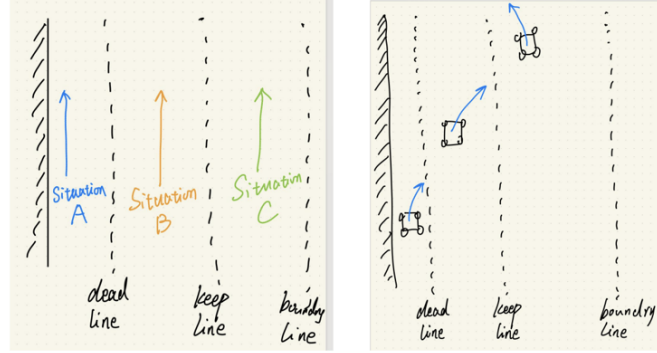 Situation
A
Situation
B
Situation
C
dead
line
keep
line
boundry
line
dead
line
keep
line
boundry
line